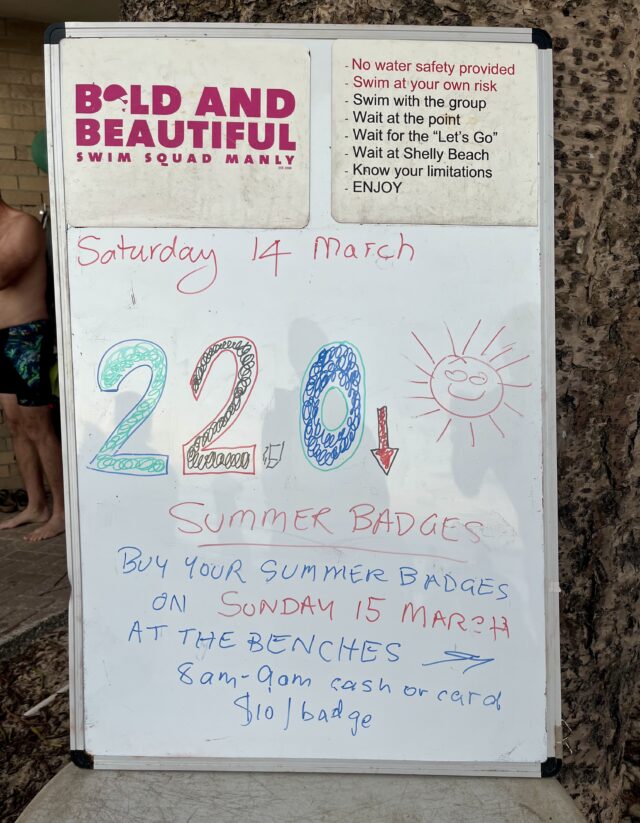 BOLD AND
BEAUTIFUL
SWIM SQUAD MANLY
- No water safety provided
- Swim at your own risk
- Swim with the group
- Wait at the point
- Wait for the “Let's Go”
- Wait at Shelly Beach
- Know your limitations
- ENJOY
Saturday 14 March
22.0
SUMMER BADGES
BUY YOUR SUMMER BADGES
ON SUNDAY 15 MARCH
AT THE BENCHES
8am-9am cash or card
$10/badge